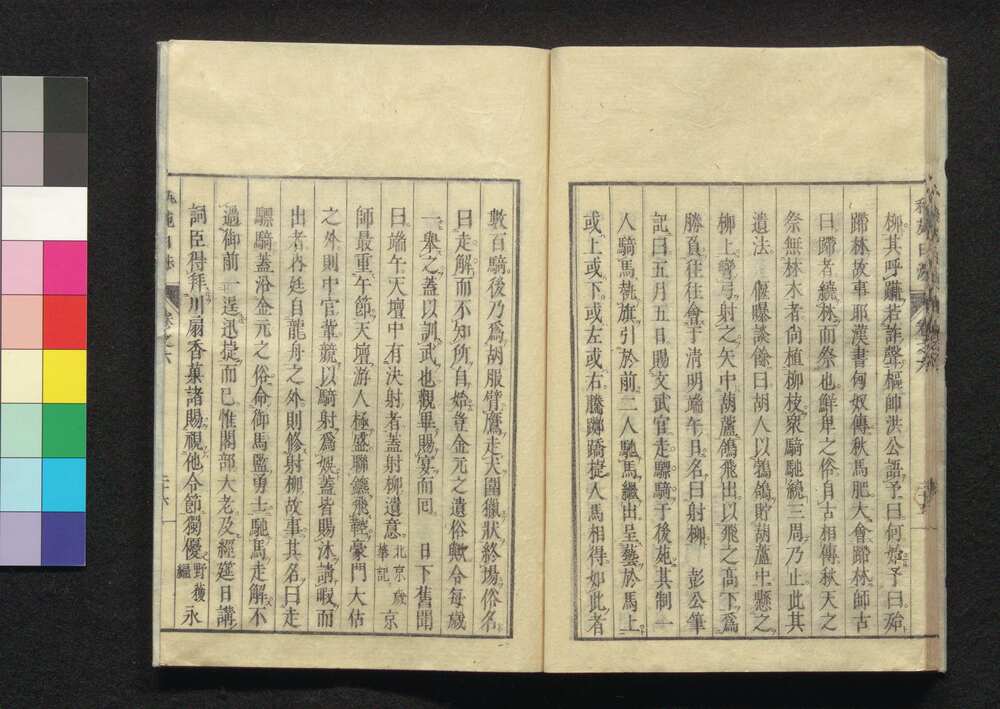 柳其呼躤若詐聲樞帥洪公語予曰何始予曰殆
蹛林故事耶漢書匈奴傳秋馬肥大會蹛林師古
曰蹛者繞林而祭也鮮卑之俗自古相傳秋天之
祭無林木者尙植柳枝衆騎馳繞三周乃止此其
遺法　偃曝談餘曰胡人以鵓鴿貯葫蘆中懸之
柳上彎弓射之矢中葫蘆鴿飛出以飛之高下爲
勝負往往會于清明端午日名曰射柳　彭公筆
記曰五月五日賜文武官走驃騎于後苑其制一
人騎馬執旗引於前二人馳馬繼出呈藝於馬上
或上或下或左或右騰躑蹻捷人馬相得如此者
數百騎後乃爲胡服臂鷹走犬圍獵狀終場俗名
曰走解而不知所自始豈金元之遺俗歟今每歲
一舉之蓋以訓武也觀畢賜宴而回　日下舊聞
曰端午天壇中有決射者蓋射柳遺意北京歲華記　京
師最重午節天壇游人極盛聯鑣飛鞚豪門大估
之外則中官輩競以騎射爲娛蓋皆賜沐請暇而
出者內廷自龍舟之外則修射柳故事其名曰走
驃騎蓋沿金元之俗命御馬監勇士馳馬走解不
過御前一逞迅捷而已惟閣部大老及經筵日講
詞臣得拜川扇香菓諸賜視他令節獨優野獲編　永